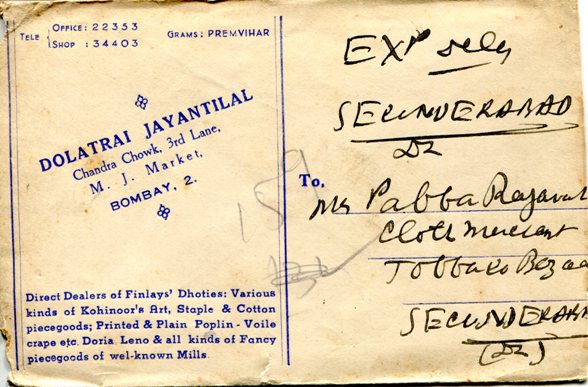 TELE OFFICE: 22353
SHOP : 34403
GRAMS: PREMVIHAR
DOLATRAI JAYANTILAL
Chandra Chowk, 3rd Lane,
M. J. Market,
BOMBAY, 2.
Direct Dealers of Finlays' Dhoties: Various
kinds of Kohinoor's Art, Staple & Cotton
piecegoods; Printed & Plain Poplin - Voile
crape etc. Doria Leno & all kinds of Fancy
piecegoods of wel-known Mills.
EXP dely
SECUNDERABAD
Dn
To,
Pabba
Cloth Merchant
SECUNDERABA
(Dn)